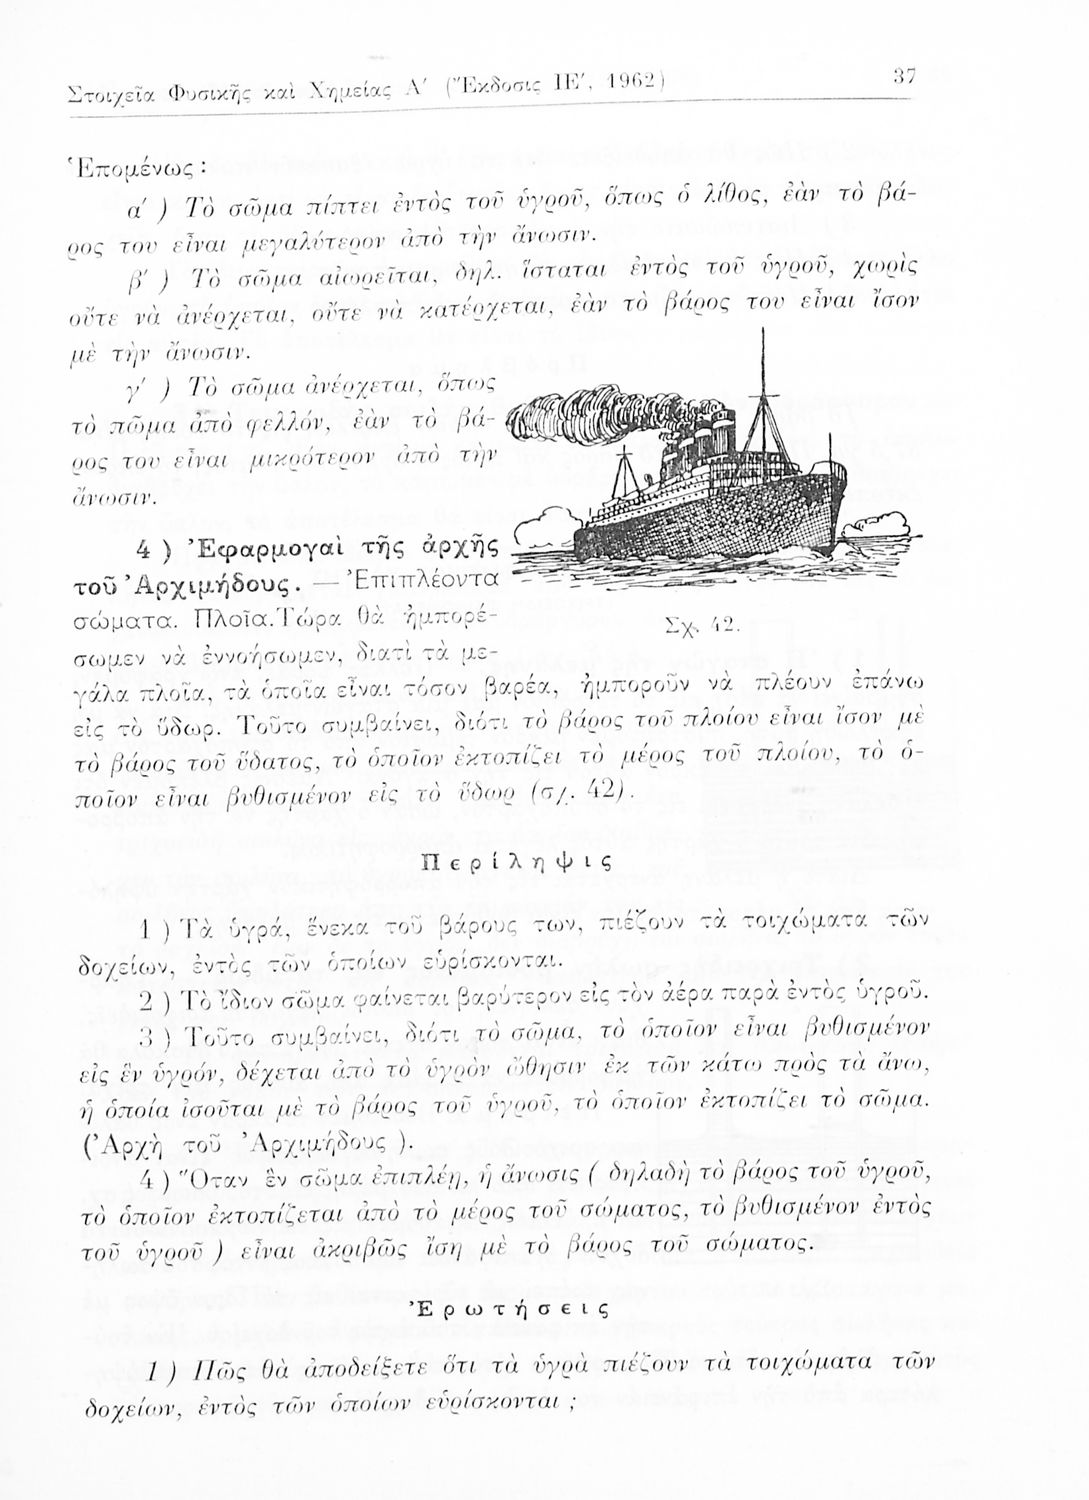 Στοιχεῖα Φυσικῆς καὶ Χημείας Α΄ (Ἔκδοσις ΙΕ΄, 1962) 37
Ἑπομένως :
α΄ ) Τὸ σῶμα πίπτει ἐντὸς τοῦ ὑγροῦ, ὅπως ὁ λίθος, ἐὰν τὸ βά-
ρος του εἶναι μεγαλύτερον ἀπὸ τὴν ἄνωσιν.
β΄ ) Τὸ σῶμα αἰωρεῖται, δηλ. ἵσταται ἐντὸς τοῦ ὑγροῦ, χωρὶς
οὔτε νὰ ἀνέρχεται, οὔτε νὰ κατέρχεται, ἐὰν τὸ βάρος του εἶναι ἴσον
μὲ τὴν ἄνωσιν.
γ΄ ) Τὸ σῶμα ἀνέρχεται, ὅπως
τὸ πῶμα ἀπὸ φελλόν, ἐὰν τὸ βά-
ρος του εἶναι μικρότερον ἀπὸ τὴν
ἄνωσιν.
4 ) Ἐφαρμογαὶ τῆς ἀρχῆς
τοῦ Ἀρχιμήδους. — Ἐπιπλέοντα
σώματα. Πλοῖα. Τώρα θὰ ἠμπορέ-
σωμεν νὰ ἐννοήσωμεν, διατὶ τὰ με-
γάλα πλοῖα, τὰ ὁποῖα εἶναι τόσον βαρέα, ἠμποροῦν νὰ πλέουν ἐπάνω
εἰς τὸ ὕδωρ. Τοῦτο συμβαίνει, διότι τὸ βάρος τοῦ πλοίου εἶναι ἴσον μὲ
τὸ βάρος τοῦ ὕδατος, τὸ ὁποῖον ἐκτοπίζει τὸ μέρος τοῦ πλοίου, τὸ ὁ-
ποῖον εἶναι βυθισμένον εἰς τὸ ὕδωρ (σχ. 42).
Σχ. 42.
Περίληψις
1 ) Τὰ ὑγρά, ἕνεκα τοῦ βάρους των, πιέζουν τὰ τοιχώματα τῶν
δοχείων, ἐντὸς τῶν ὁποίων εὑρίσκονται.
2 ) Τὸ ἴδιον σῶμα φαίνεται βαρύτερον εἰς τὸν ἀέρα παρὰ ἐντὸς ὑγροῦ.
3 ) Τοῦτο συμβαίνει, διότι τὸ σῶμα, τὸ ὁποῖον εἶναι βυθισμένον
εἰς ἓν ὑγρόν, δέχεται ἀπὸ τὸ ὑγρὸν ὤθησιν ἐκ τῶν κάτω πρὸς τὰ ἄνω,
ἡ ὁποία ἰσοῦται μὲ τὸ βάρος τοῦ ὑγροῦ, τὸ ὁποῖον ἐκτοπίζει τὸ σῶμα.
(Ἀρχὴ τοῦ Ἀρχιμήδους ).
4 ) Ὅταν ἓν σῶμα ἐπιπλέῃ, ἡ ἄνωσις ( δηλαδὴ τὸ βάρος τοῦ ὑγροῦ,
τὸ ὁποῖον ἐκτοπίζεται ἀπὸ τὸ μέρος τοῦ σώματος, τὸ βυθισμένον ἐντὸς
τοῦ ὑγροῦ ) εἶναι ἀκριβῶς ἴση μὲ τὸ βάρος τοῦ σώματος.
Ἐρωτήσεις
1 ) Πῶς θὰ ἀποδείξετε ὅτι τὰ ὑγρὰ πιέζουν τὰ τοιχώματα τῶν
δοχείων, ἐντὸς τῶν ὁποίων εὑρίσκονται ;